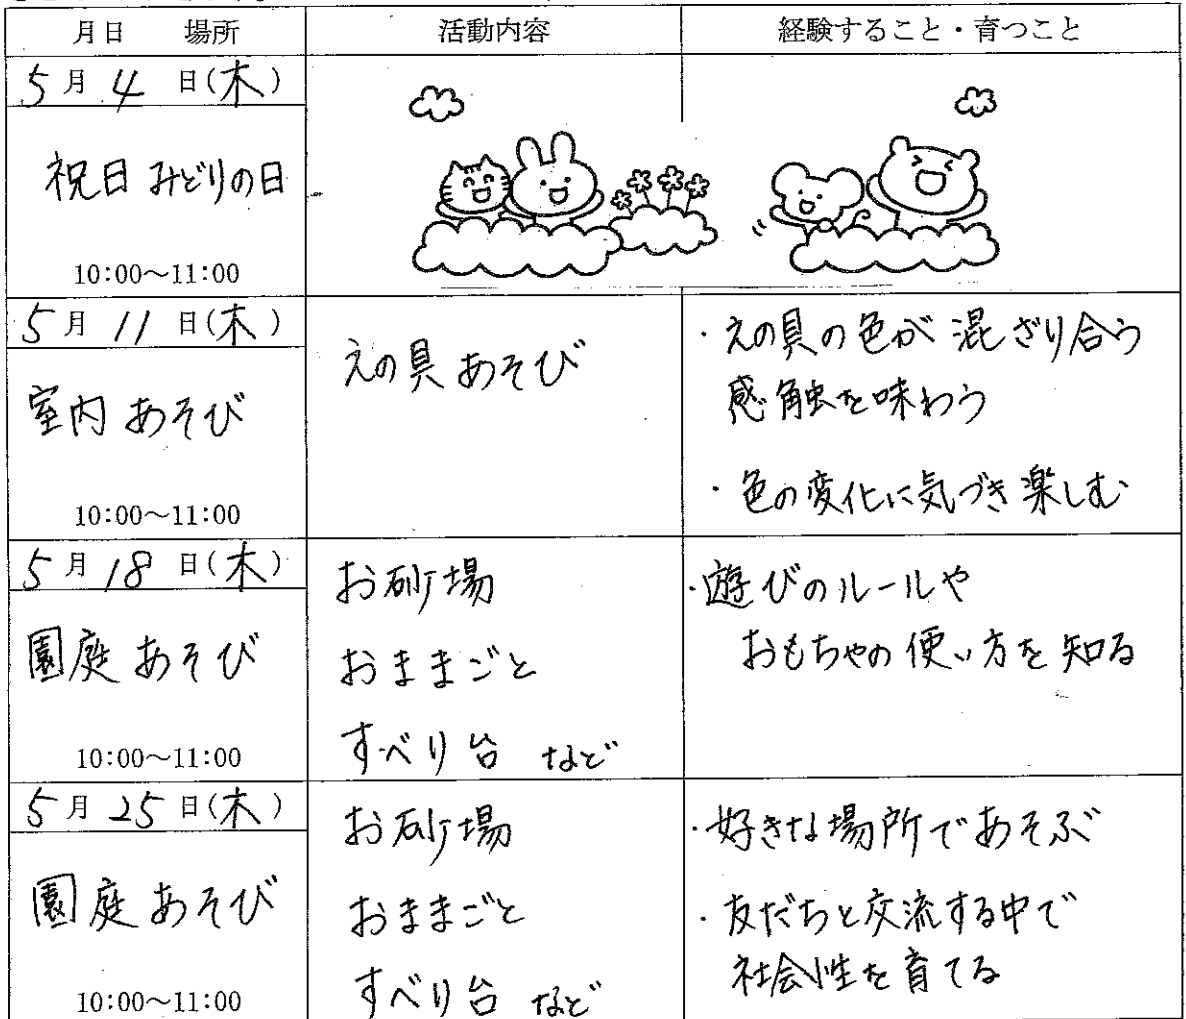 月日 場所 活動内容 経験すること・育つこと
5月4日(木)
祝日 みどりの日
10:00～11:00
5月11日(木)
室内あそび
10:00～11:00
えの具あそび
・えの具の色が混ざり合う
感触を味わう
・色の変化に気づき楽しむ
5月18日(木)
園庭あそび
10:00～11:00
お砂場
おままごと
すべり台 など
・遊びのルールや
おもちゃの使い方を知る
5月25日(木)
園庭あそび
10:00～11:00
お砂場
おままごと
すべり台 など
・好きな場所であそぶ
・友だちと交流する中で
社会性を育てる